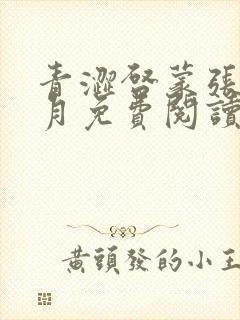 青澀啓蒙張
月免費閱讀
黃頭發的小王